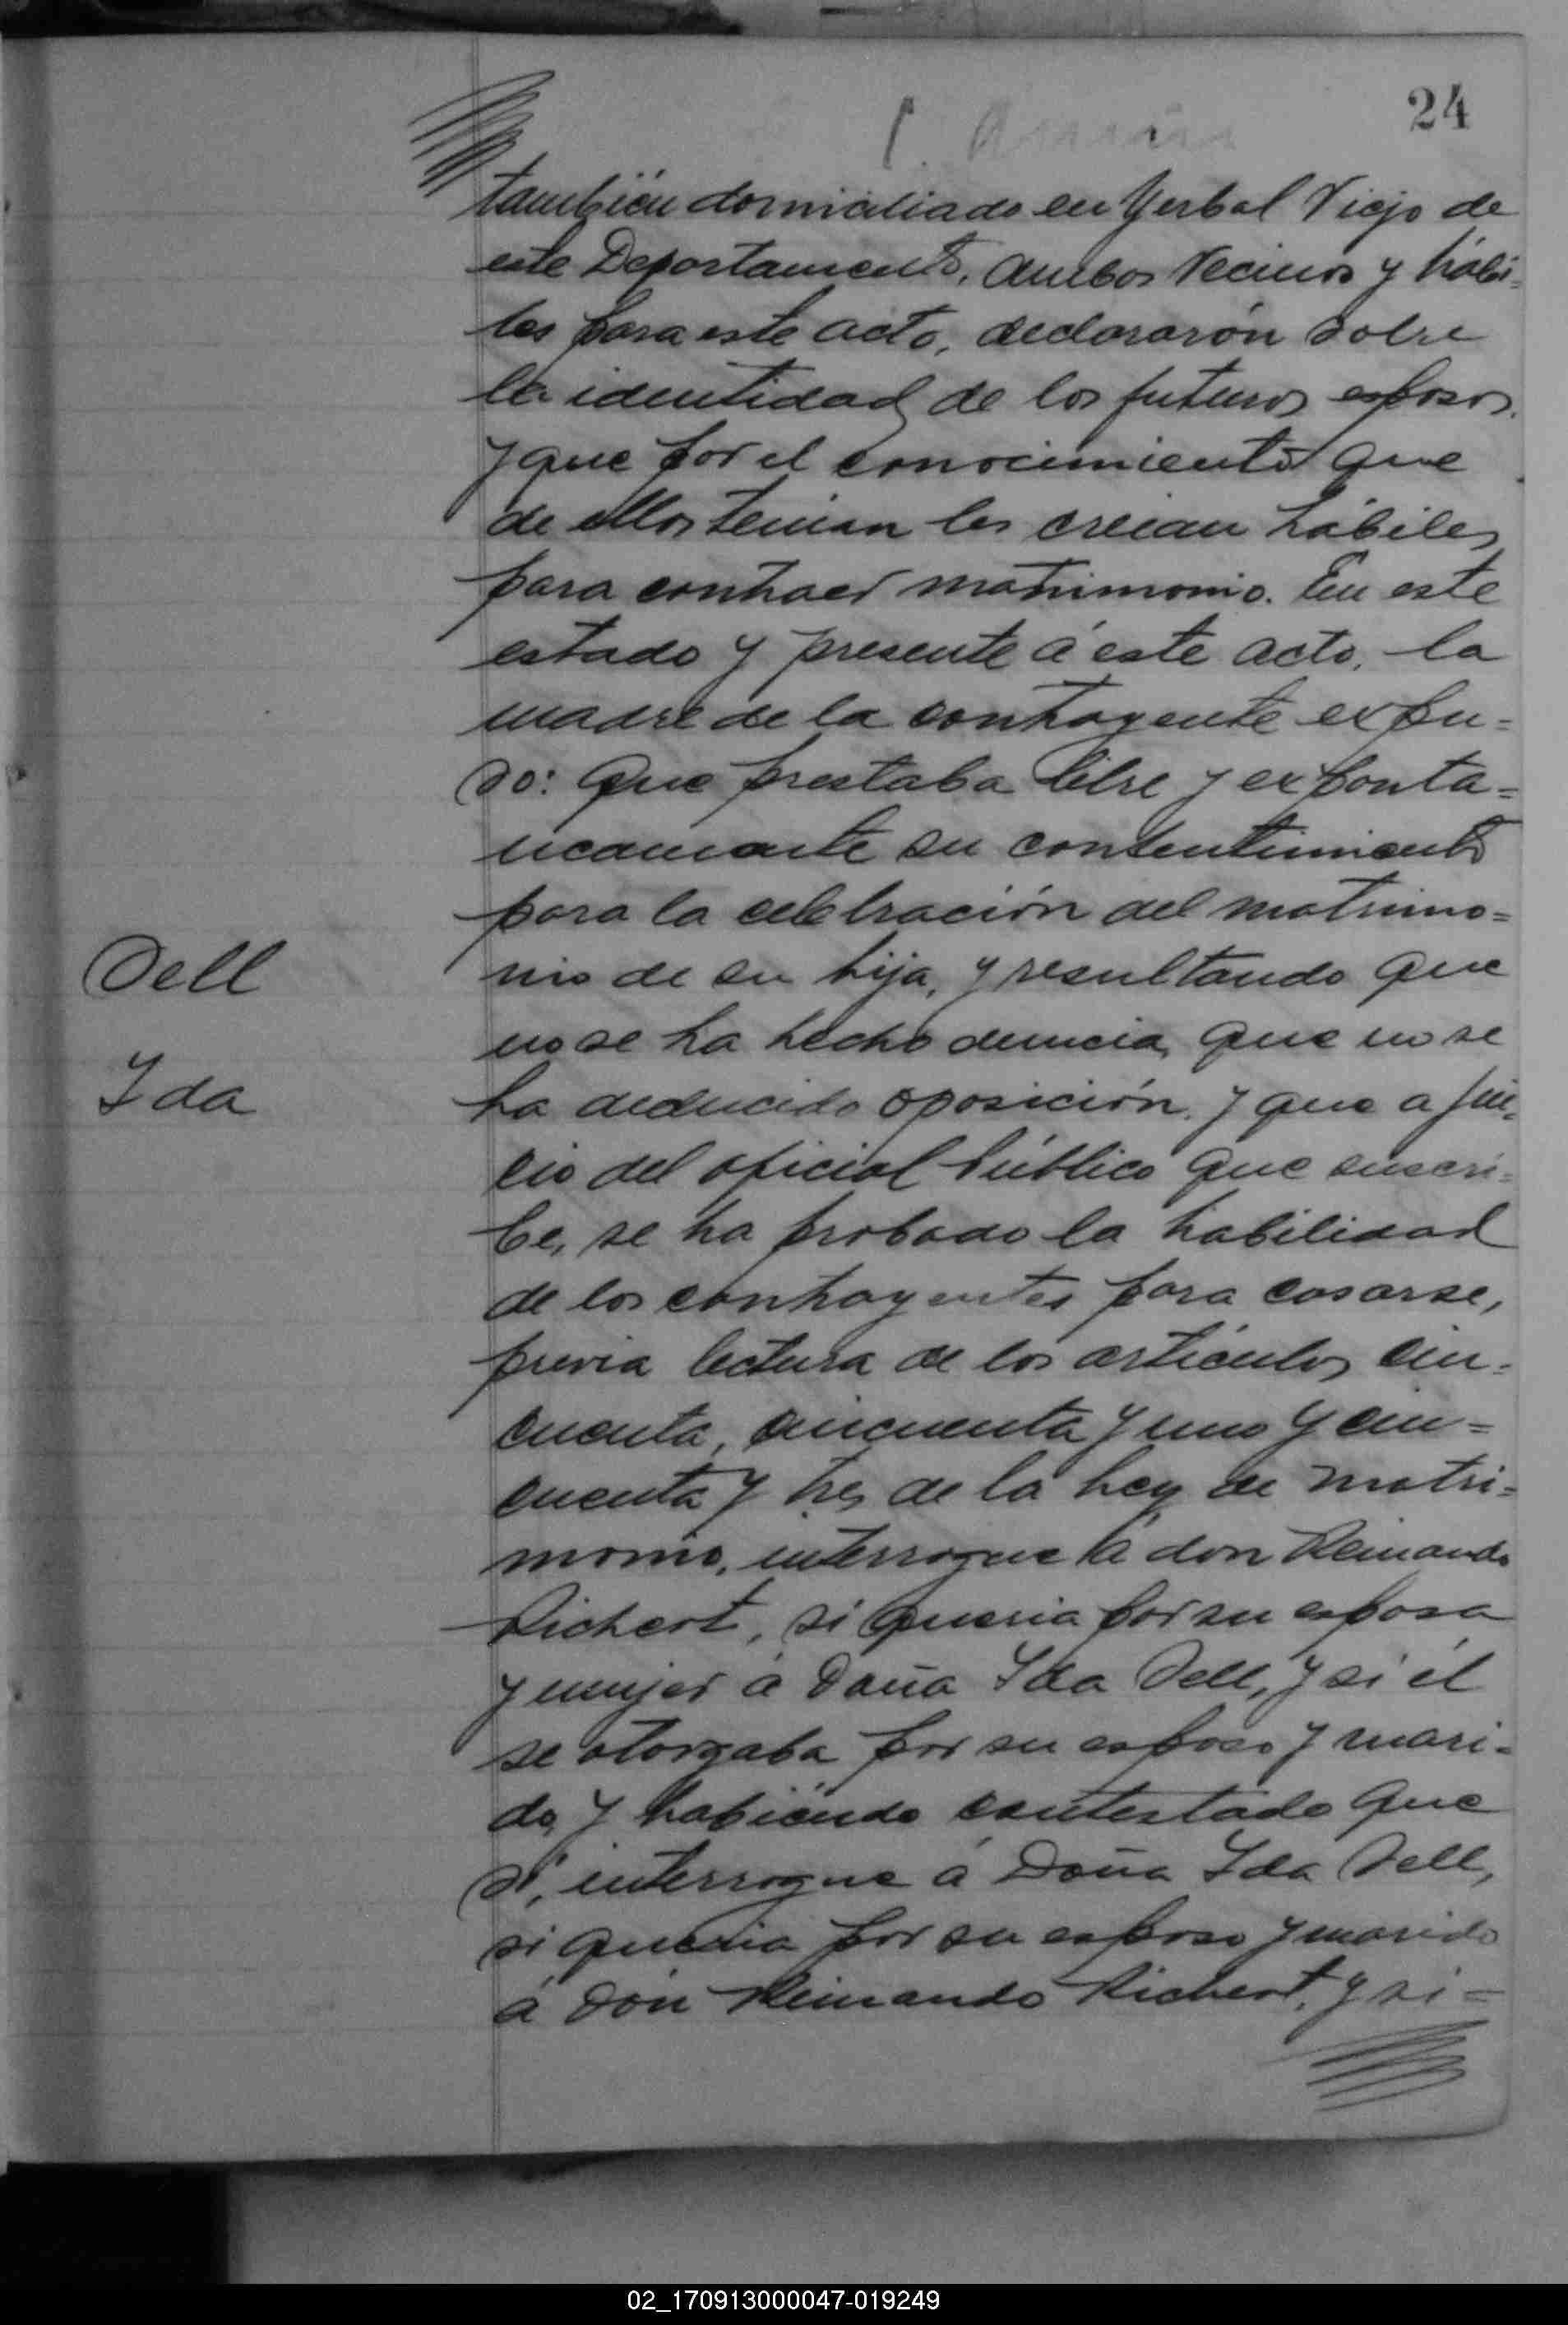 24
también domiciliado en Yerbal Viejo de
este Departamento, ambos vecinos y hábi=
les para este acto, declararón sobre
la identidad de los futuros esposos,
y que por el conocimiento que
de ellos tenian los creian hábiles
para contraer matrimonio. En este
estado y presente á este acto, la
madre de la contrayente expu=
so: Que prestaba libre y exponta=
neamente su consentimiento
para la celebración del matrimo=
nio de su hija, y resultando que
no se ha hecho denucia, que no se
ha deducido oposición, y que a jui=
cio del oficial Público que suscri=
be, se ha probado la habilidad
de los contrayentes para casarse,
previa lectura de los artículos cin=
cuenta, cincuenta y uno y cin=
cuenta y tres de la Ley de matri=
monio, interrogue á don Reinando
Richert, si queria por su esposa
y mujer á Doña Ida Dell, y si él
se otorgaba por su esposo y mari=
do, y habiéndo contestado que
si, interrogue á Doña Ida Dell,
si queria por su esposo y marido
á Don Reinando Richert, y si=
Dell
Ida
02_170913000047-019249